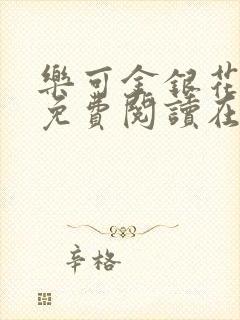 樂可金銀花
免費閱讀在
辛格